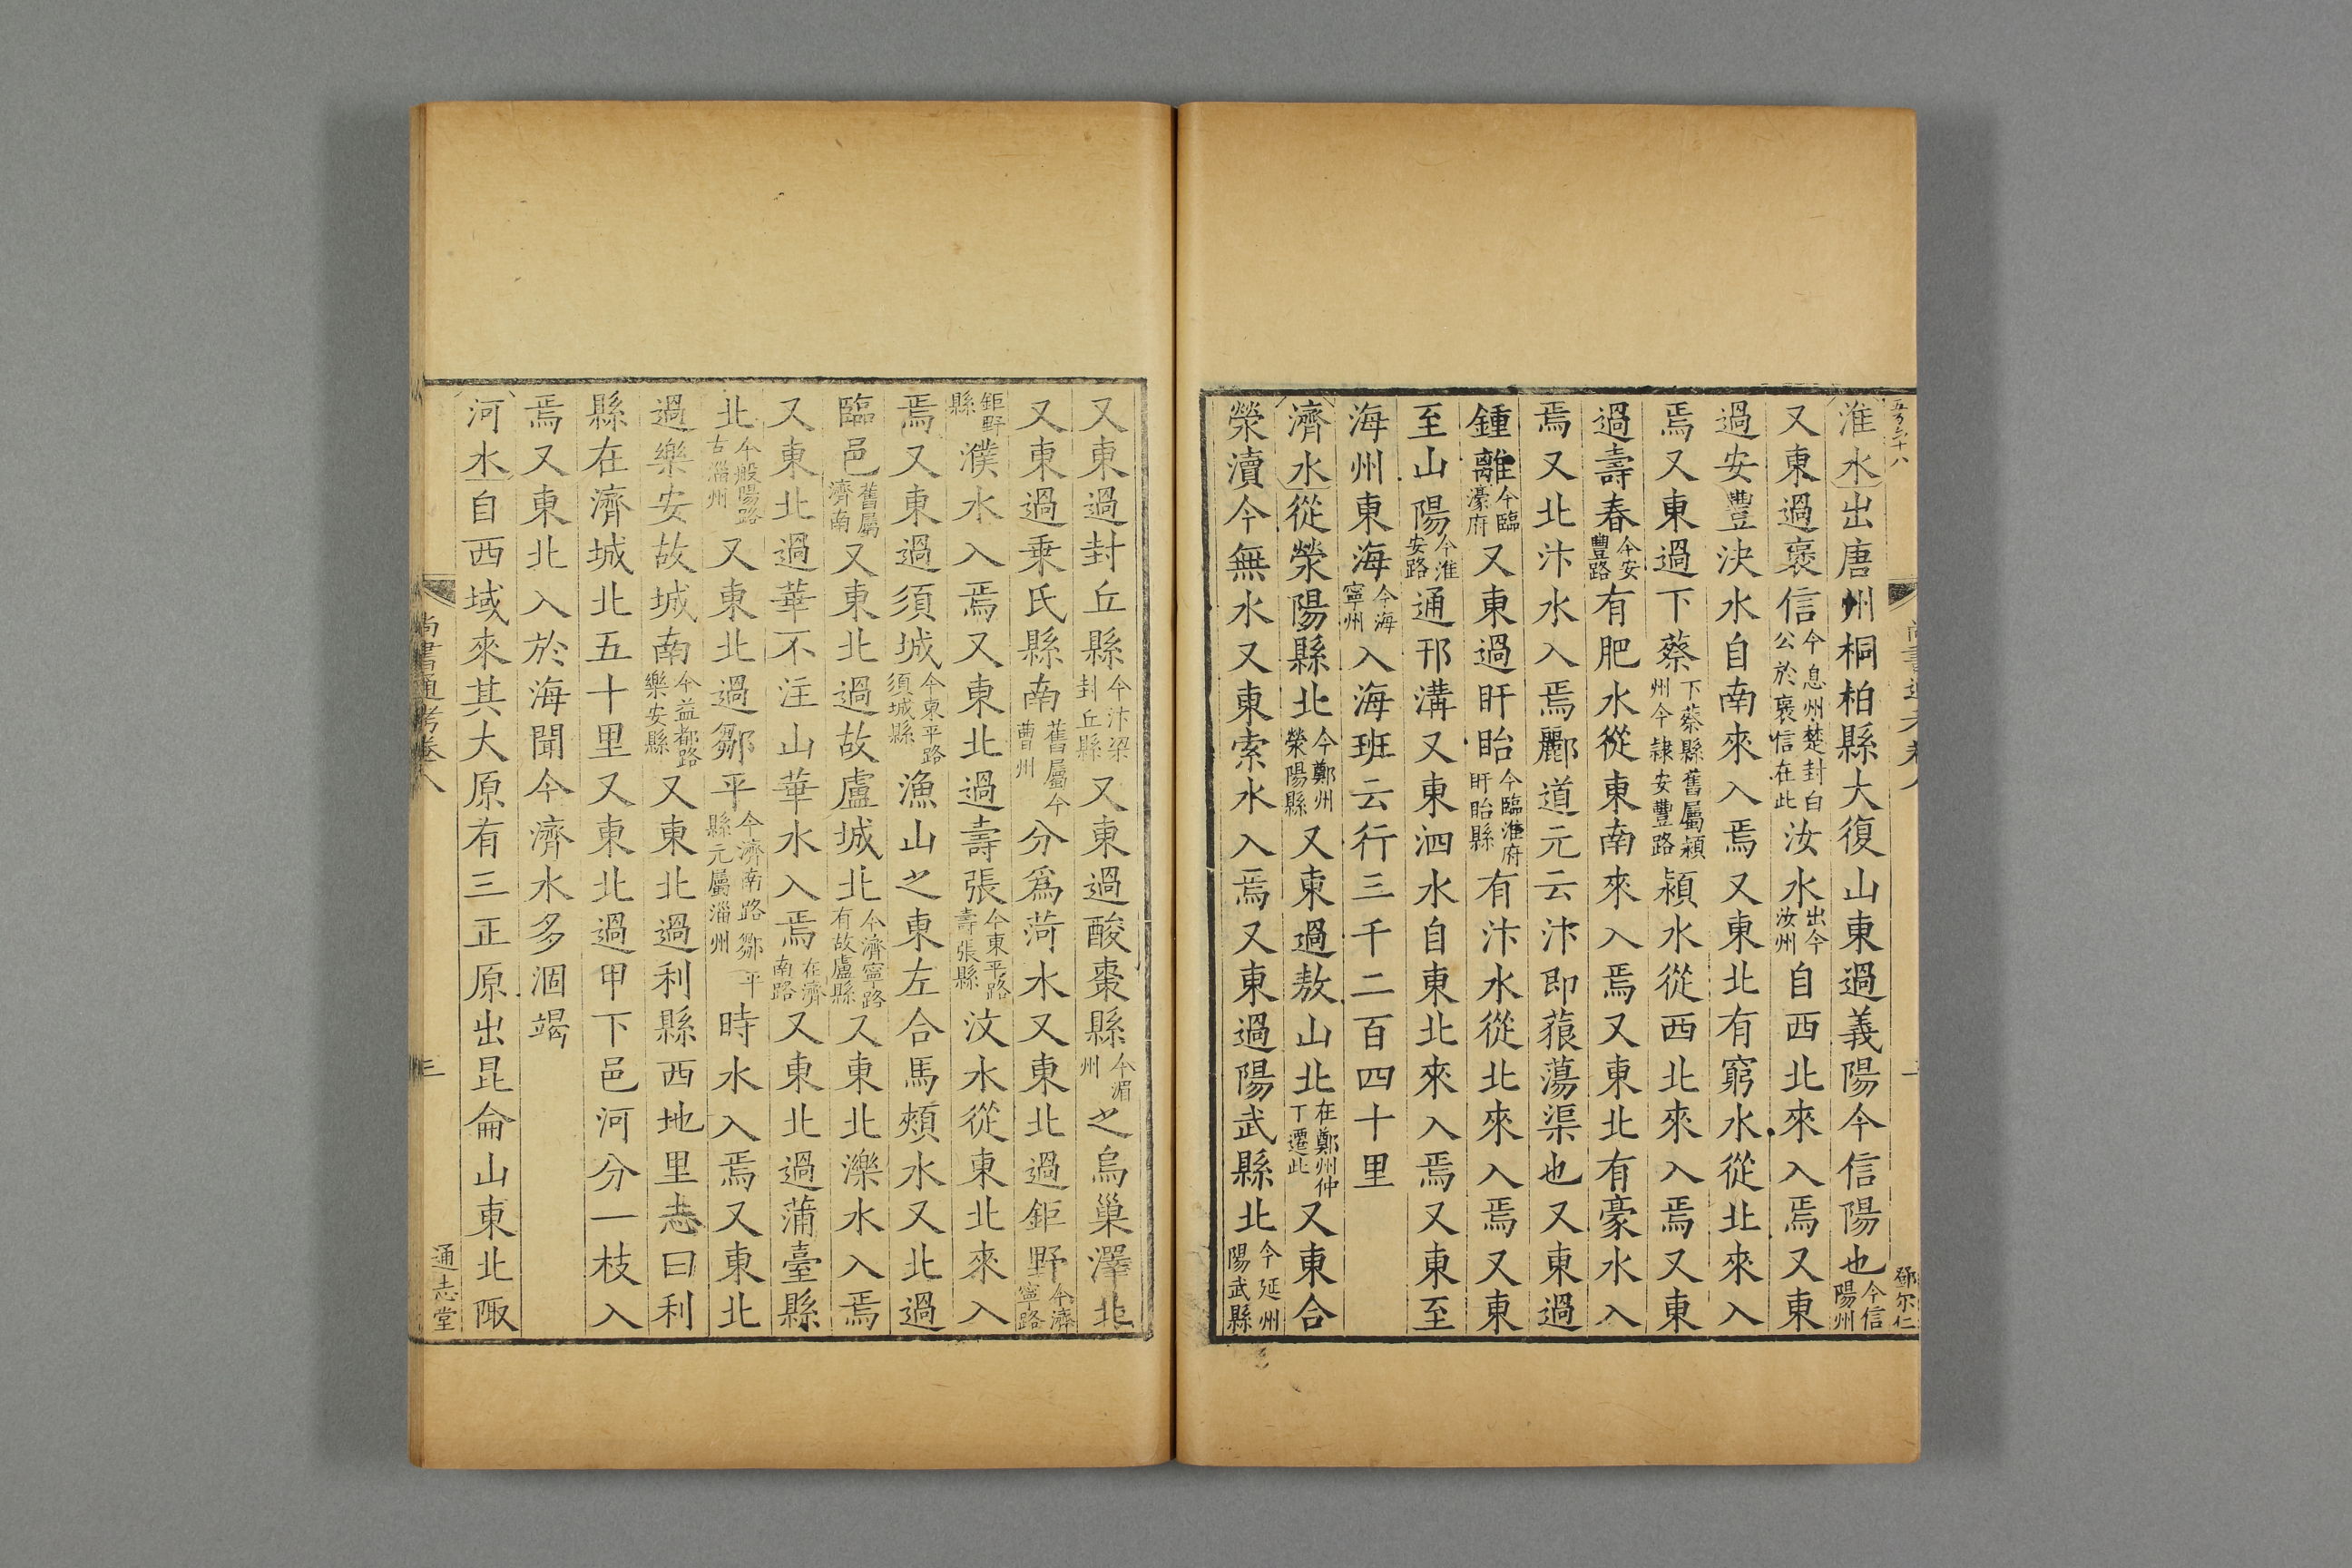 淮水出唐州桐柏縣大復山東過義陽今信陽也今信陽州
又東過褒信今息州楚封白公於褒信在此汝水出今汝州自西北來入焉又東
過安豐決水自南來入焉又東北有窮水從北來入
焉又東過下蔡下蔡縣舊屬潁州今隸安豐路潁水從西北來入焉又東
過壽春今安豐路有肥水從東南來入焉又東北有豪水入
焉又北汴水入焉酈道元云汴即蒗蕩渠也又東過
鍾離今臨濠府又東過盱眙今臨淮府盱眙縣有汴水從北來入焉又東
至山陽今淮安路通邗溝又東泗水自東北來入焉又東至
海州東海今海寧州入海班云行三千二百四十里
濟水從滎陽縣北今鄭州滎陽縣又東過敖山北在鄭州仲丁遷此又東合
滎瀆今無水又東索水入焉又東過陽武縣北今延州陽武縣
鄧尔仁
又東過封丘縣今汴梁封丘縣又東過酸棗縣今湄州之烏巢澤北
又東過乗氏縣南舊屬今曹州分爲菏水又東北過鉅野今濟寧路
鉅野縣濮水入焉又東北過壽張今東平路壽張縣汶水從東北來入
焉又東過須城今東平路須城縣漁山之東左合馬頰水又北過
臨邑舊屬濟南又東北過故盧城北今濟寧路有故盧縣又東北濼水入焉
又東北過華不注山華水入焉在濟南路又東北過蒲臺縣
北今般陽路古淄州又東北過鄒平今濟南路鄒平縣元屬淄州時水入焉又東北
過樂安故城南今益都路樂安縣又東北過利縣西地里志曰利
縣在濟城北五十里又東北過甲下邑河分一枝入
焉又東北入於海聞今濟水多涸竭
河水自西域來其大原有三正原出昆侖山東北陬
尚書通考卷八
三
通志堂